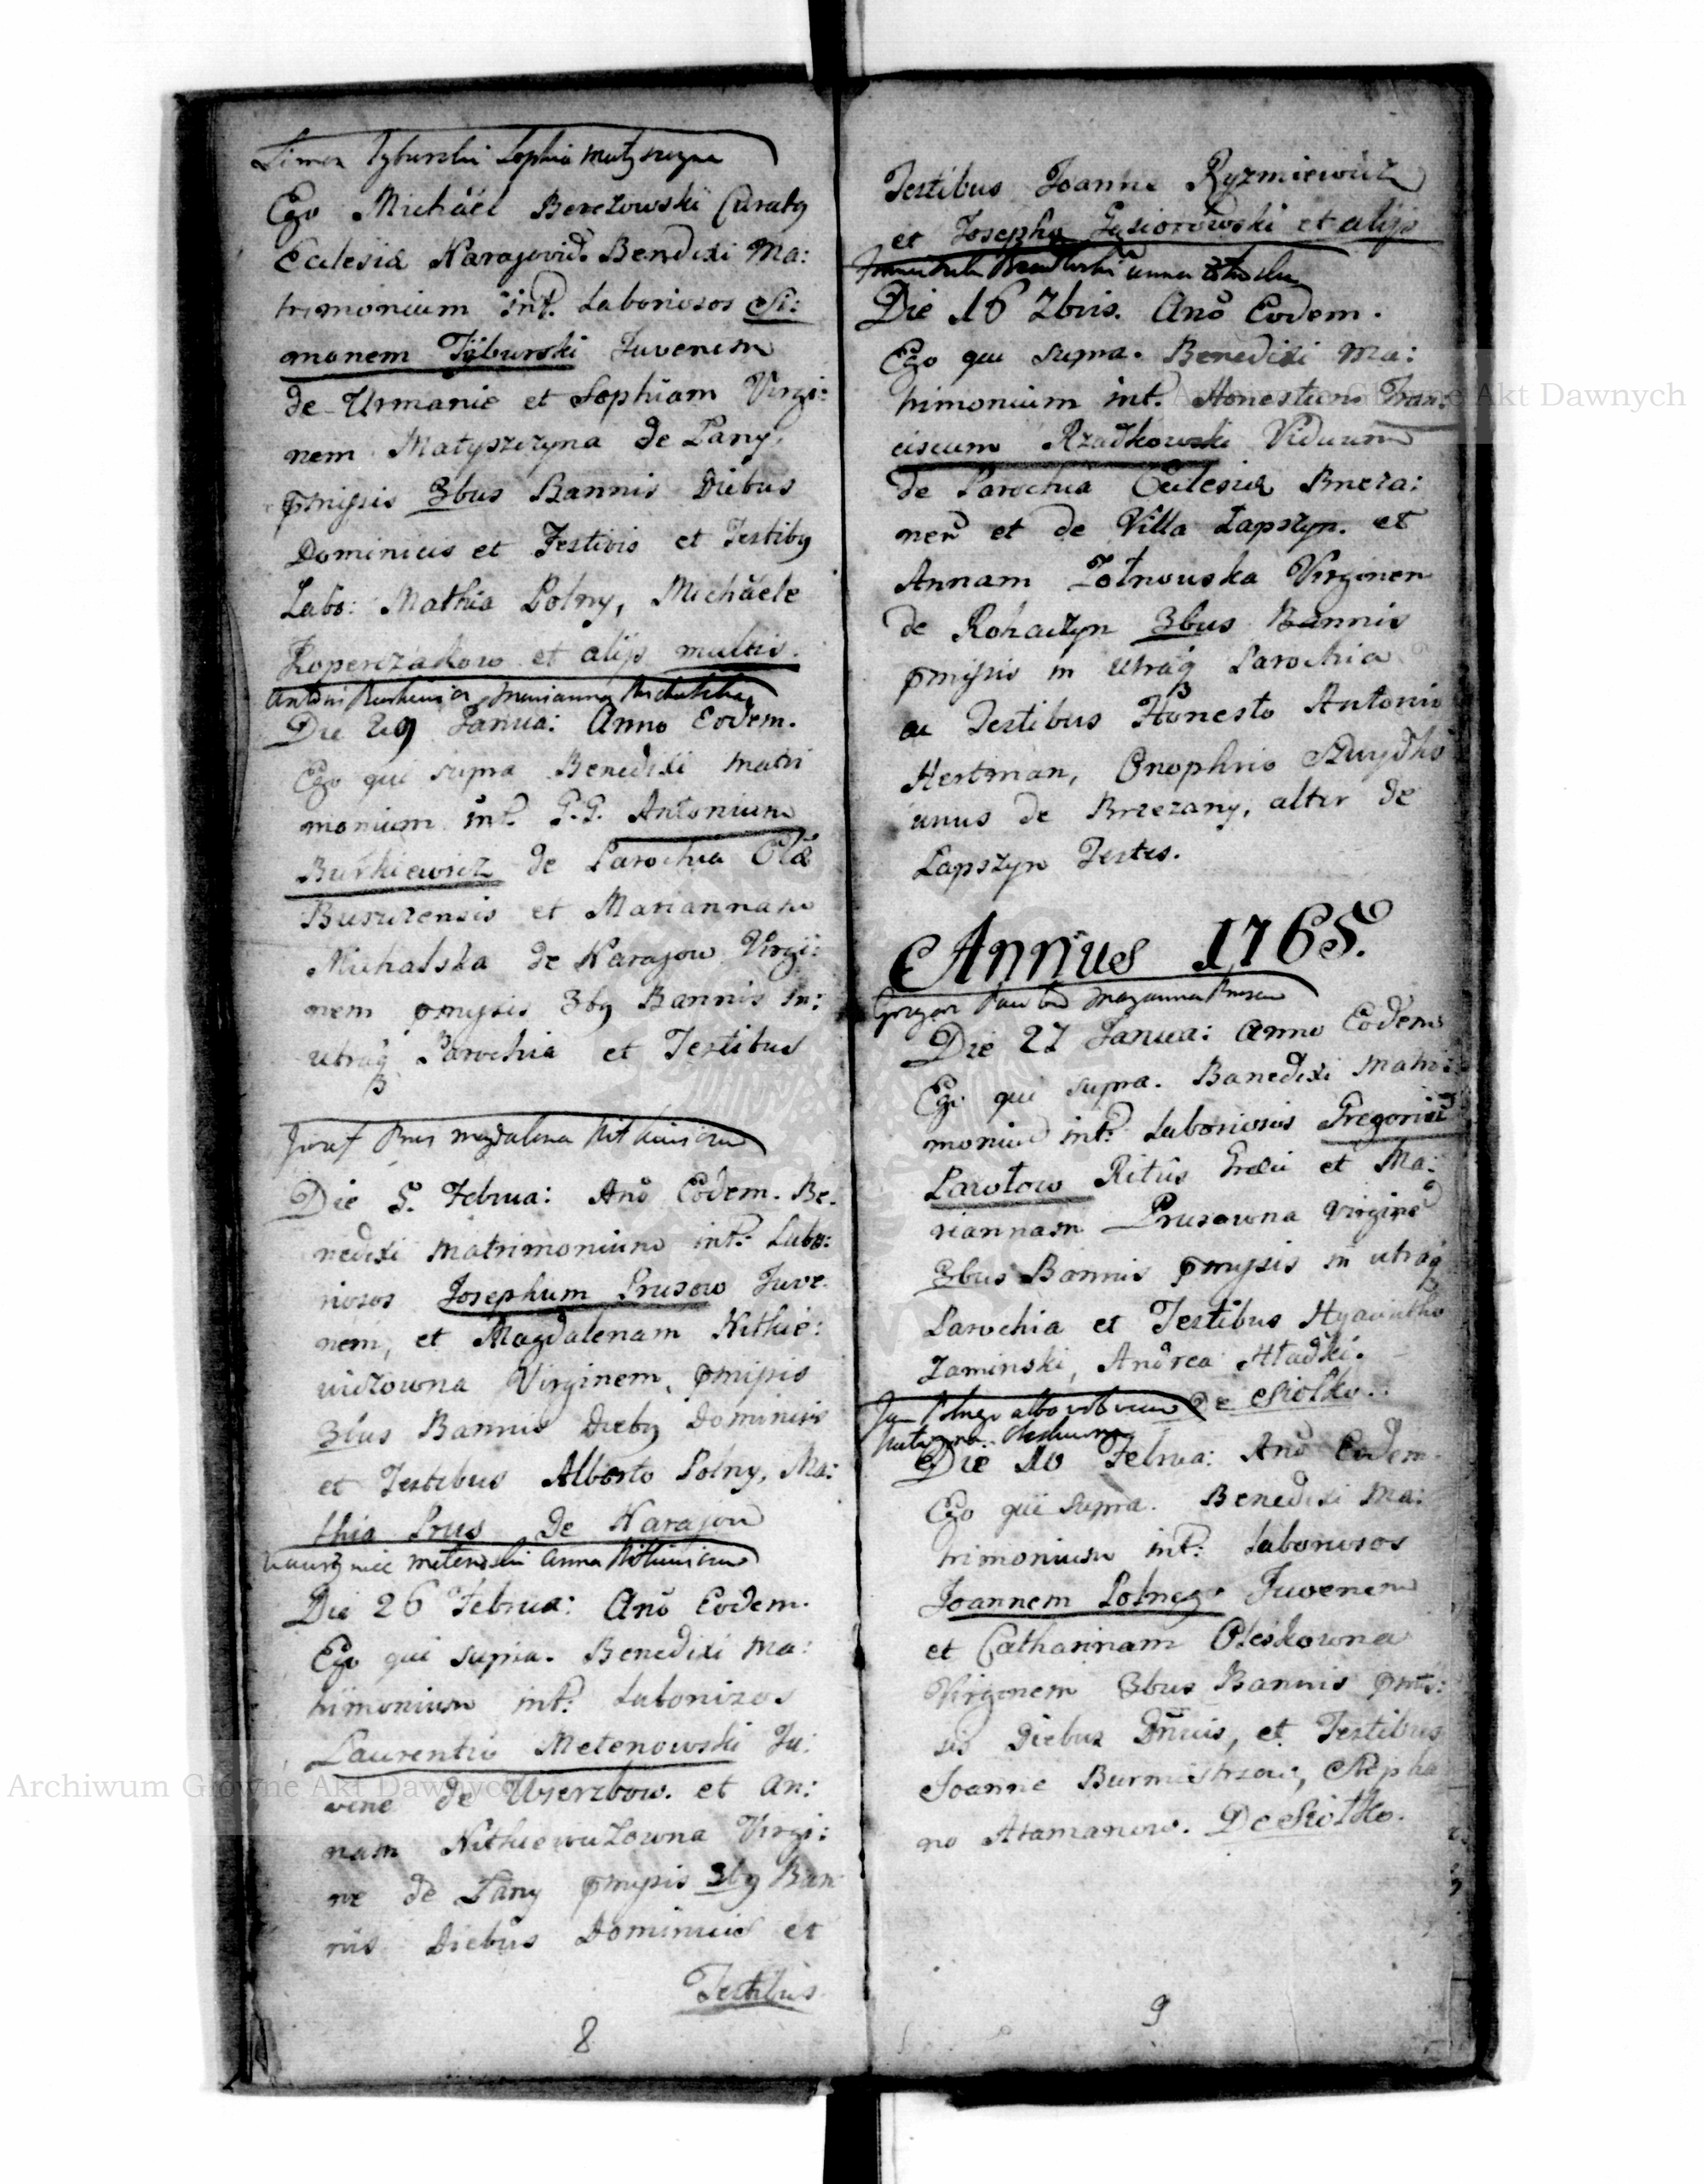 Simon Tyburski Sophia Matyszczyna
Ego Michäel Berezowski Curatq
Ecclesiæ Narajovie. Benedixi Ma:
trimonium int. Laboriosos Si:
monem Tÿburski Juvenem
de Urmanie et Sophiam Virgi:
nem Matyszczyna de Łany.
pmissis 3bus Bannis Diebus
Dominicis et Festivis et Testibq
Labo: Mathia Polny, Michäele
Koperczakow et alijs multis.
Die 29 Janua: Anno Eodem.
Ego qui supra Benedixi matri
monium int. G.G. Antonium
Butkiewicz de Parochia Eclæ
Buszczensis et Mariannam
Michalska de Narajow Virgi:
nem pmissis 3bq Bannis in:
utraq Parochia et Testibus
Józef Prus Magdalena
Die 5. Februa: Anō Eodem. Be:
nedixi Matrimonium int: Labo:
riosos Josephum Prusow Juve:
nem, et Magdalenam Nithie:
wiczowna Virginem, pmissis
3bus Bannis Diebq Dominicis
et Testibus Alberto Polny, Ma:
thia Prus de Narajow
Anna
Die 26 Februa: Anō Eodem.
Ego qui supra. Benedixi Ma:
trimonium int: Laboriosos
Laurentiū Metenowski Ju:
vene de Wierzbow. et An:
nam Nithiewiczowna Virgi:
ne de Łany pmissis 3bq Ban
nis Diebus Dominicis et
Testibus
8
Testibus Joanne Ryzmiewicz
et Josepho Gąsiorowski et alijs
Anna
Die 16 7bris. Anō Eodem.
Ego qui supra. Benedixi Ma:
trimonium int. Honestum Fran:
ciscum Rzadkowski Viduum
de Parochia Ecclesiæ Brzeza:
nen et de Villa Łapszyn. et
Annam Zołnowska Virginem
de Rohaczyn 3bus Bannis
pmissis in utraq Parochia
ac Testibus Honesto Antonio
Hertman, Onophrio
unus de Brzezany, alter de
Łapszyn Testes.
Annus 1765.
Die 27 Janua: Anno Eodem
Ego qui supra. Banedixi Matri:
moniū int: Laboriosos Gregoriū
Pawłow Ritûs Græci et Ma:
riannam Prusowna Virginē
3bus Bannis pmissis in utraq
Parochia et Testibus Hyacintho
Zaminski, Andrea Hładki.
De Siołko.
Jan Polny
Die 10 Februa: Anō Eodem.
Ego qui supra. Benedixi Ma:
trimonium int: Laboriosos
Joannem Polnego Juvenem
et Catharinam Oleskowna
Virginem 3bus Bannis pmis:
sis Diebus Dnicis, et Testibus
Joanne Burmistrzow, Stepha
no Atamanow. De Siołko.
9
Archiwum Główne Akt Dawnych
Archiwum Główne Akt Dawnych